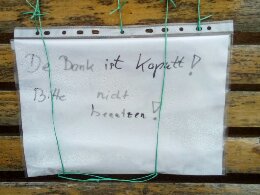 De Bank ist Kaputt!
Bitte nicht
benutzen!